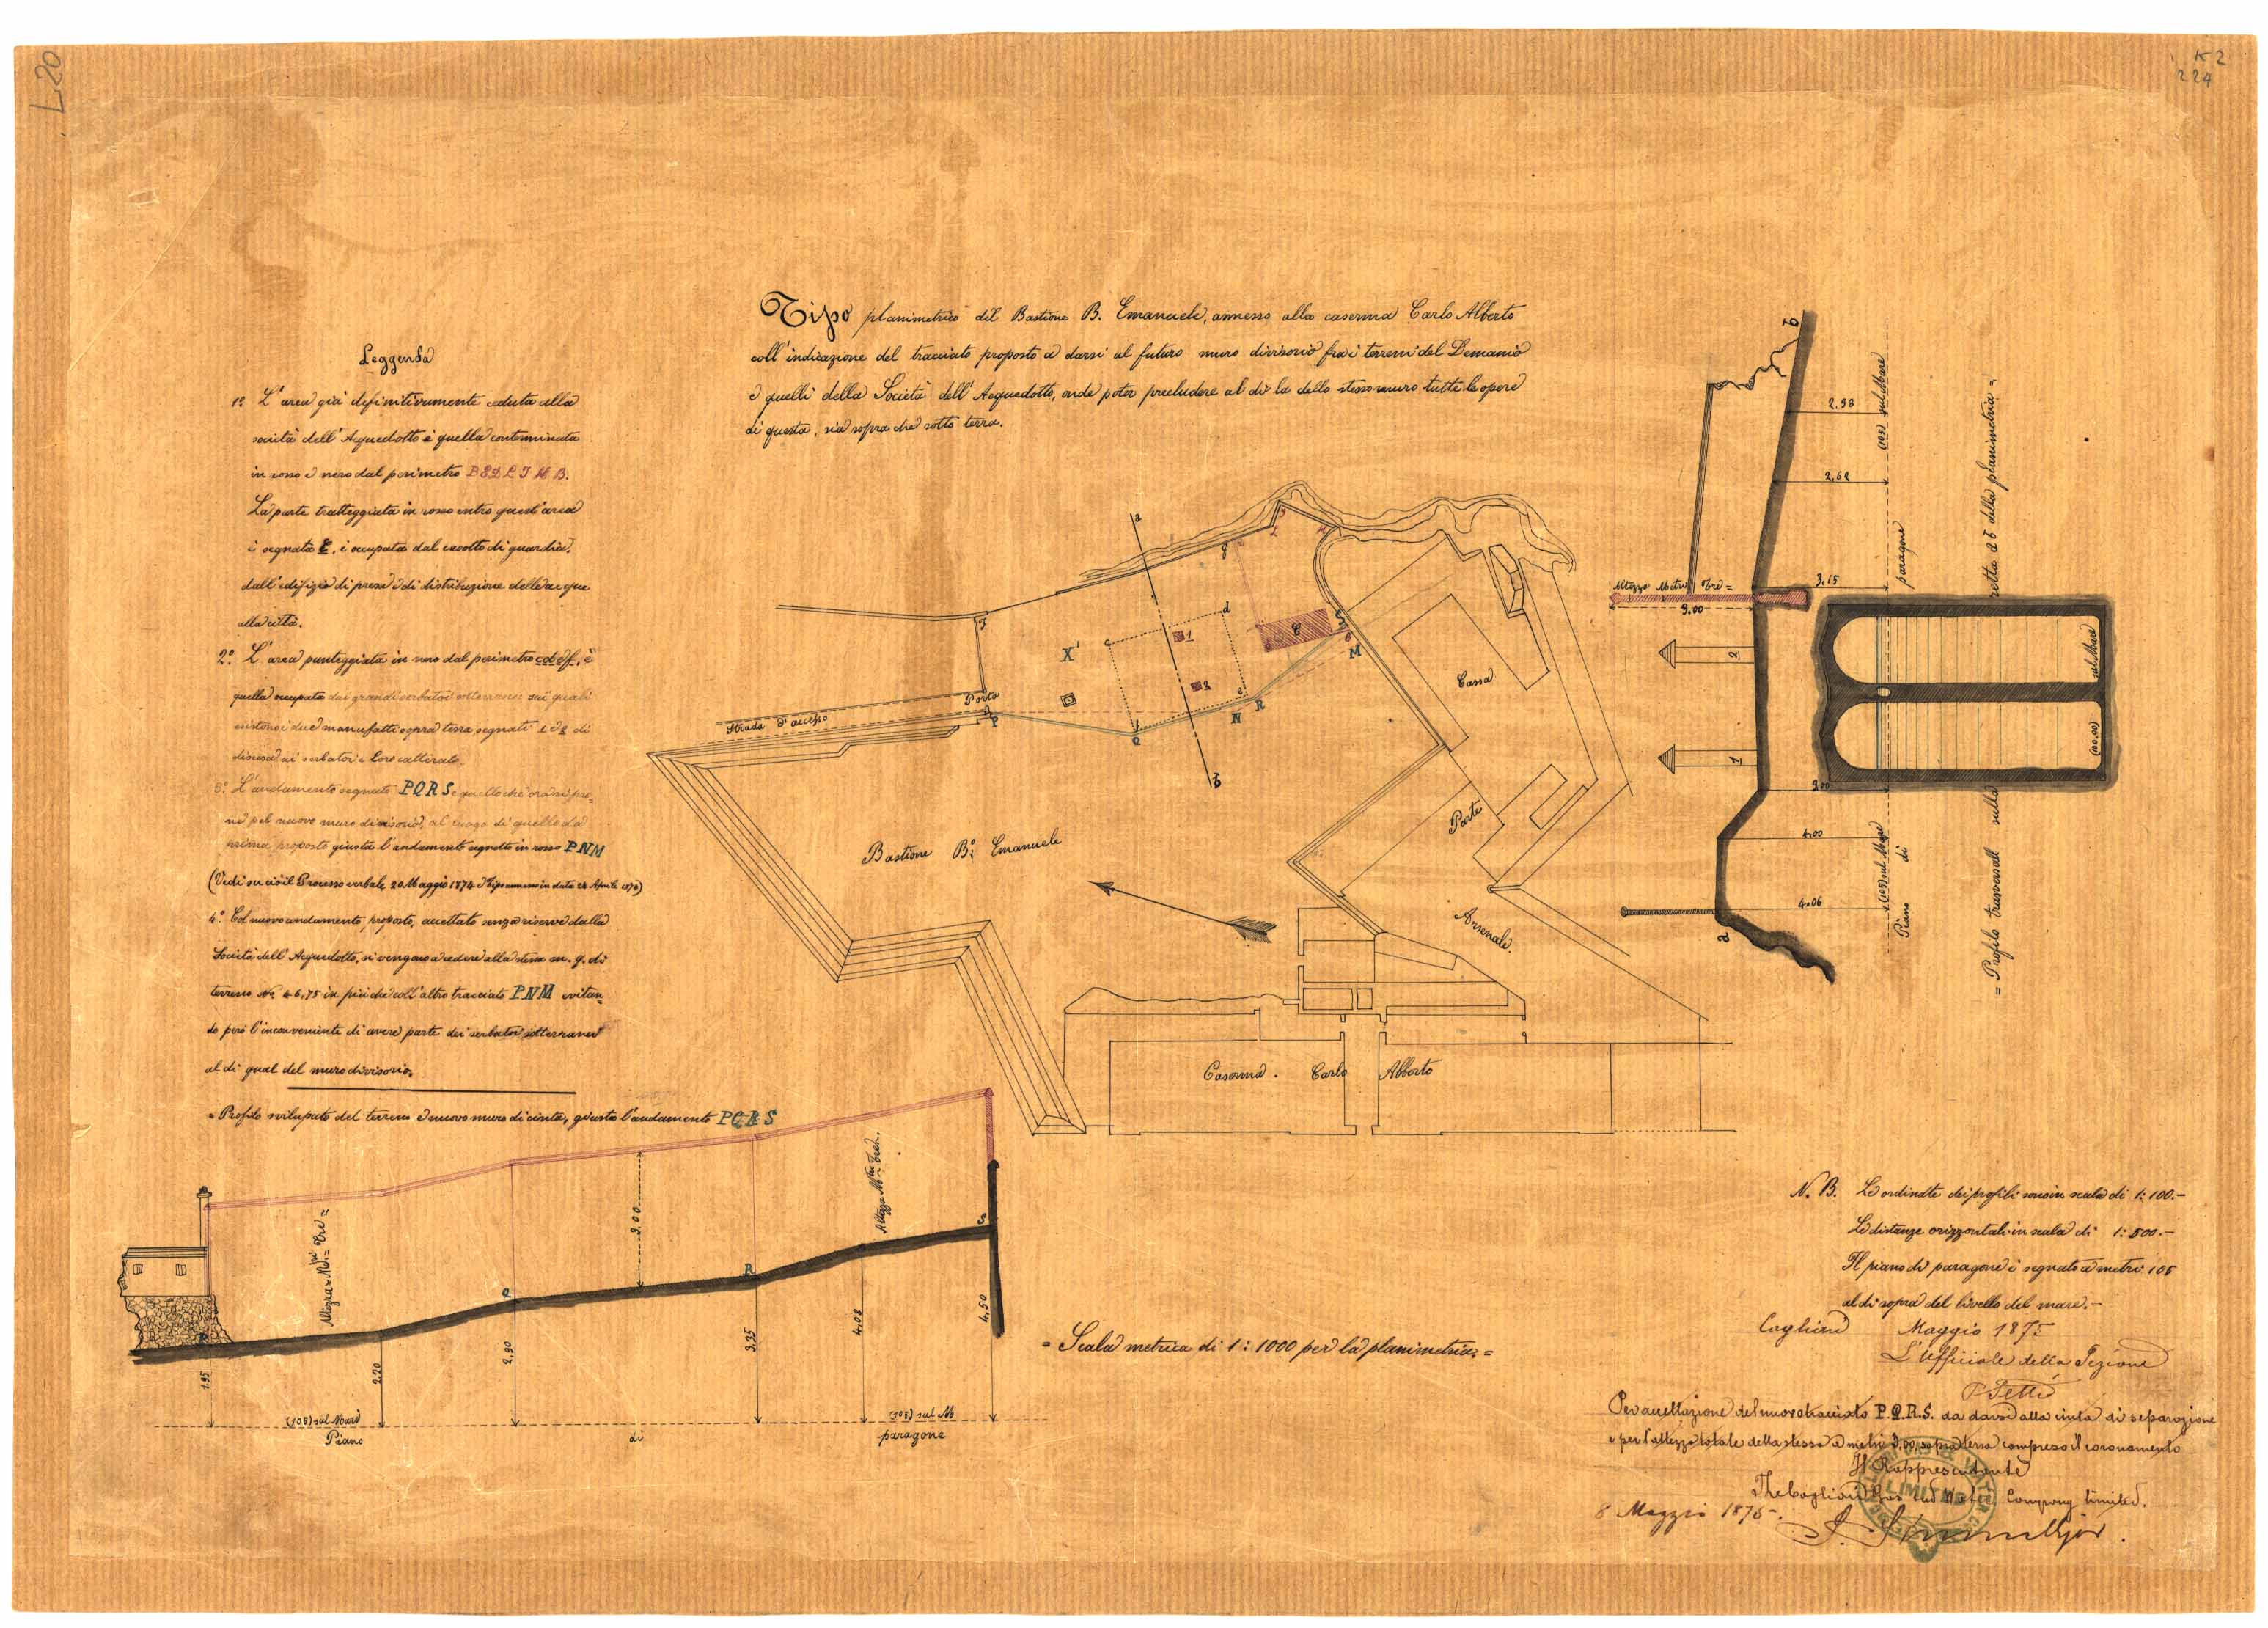 L20
K2
224
Tipo planimetrico del Bastione B. Emanuele, annesso alla caserma Carlo Alberto
coll'indicazione del tracciato proposto a darsi al futuro muro divisorio fra i terreni del Demanio
e quelli della Società dell'Acquedotto, onde poter precludere al di là dello stesso muro tutte le opere
di questa, sia sopra che sotto terra.
Leggenda
1º L'area già definitivamente ceduta alla
società dell'Acquedotto è quella conterminata
in rosso e nero dal perimetro
La parte tratteggiata in rosso entro quest'area
è segnata è occupata dal casotto di guardia,
dall'edifizio di presa e di distribuzione delle acque
alla città.
2º L'area punteggiata in nero dal perimetro cdef, è
quella occupata dai grandi serbatoi sotterranei sui quali
esistono i due manufatti sopra terra segnati 1 e 2 di
discesa ai serbatoi e loro
3º L'andamento segnato PQRS è quello che ora si pro-
ne pel nuovo muro divisorio, al luogo di quello da
prima proposto giusta l'andamento segnato in rosso PNM
(Vedi su ciò il Processo verbale 20 Maggio 1874 e Tipo annesso in data 24 Aprile 1874)
4º Col nuovo andamento proposto, accettato senza riserve dalla
Società dell'Acquedotto, si vengono a cedere alla stessa m. q. di
terreno Nº 46,75 in più che coll'altro tracciato PNM evitan-
do però l'inconveniente di avere parte dei serbatoi sotterranei
al di qual del muro divisorio.
= Profilo sviluppato del terreno e nuovo muro di cinta, giusta l'andamento PQRS
Altezza Mtri Tre =
3.00
Altezza Mtri Tre =
P
Q
R
S
1.95
2.20
2.90
3.35
4.08
4.50
(105) sul Mare
Piano
di
(105) sul M
paragone
a
X'
c
d
1
2
e
f
C
S
M
N
R
Q
P
b
Porta
Strada d'accesso
Bastione Bº: Emanuele
Cassa
Parte
Arsenale
Caserma. Carlo Alberto
= Scala metrica di 1:1000 per la planimetria =
b
2.98
2.68
Altezza Metri Tre =
3.00
3.15
2
1
3.00
4.00
4.06
a
(105) sul Mare
paragone
(105) sul Mare
Piano di
sul Mare
(100.00)
= Profilo trasversale sulla retta ab della planimetria =
N. B. Le ordinate dei profili sono in scala di 1:100.-
Le distanze orizzontali in scala di 1:500.-
Il piano di paragone è segnato a metri 105
al di sopra del livello del mare.-
Cagliari Maggio 1875
L'Ufficiale della Sezione
Per accettazione del nuovo tracciato P.Q.R.S. da darsi alla cinta di separazione
e per l'altezza totale della stessa a metri 3,00 sopra terra compreso il coronamento
Il Rappresentante
The Cagliari Gas and Water Company limited.
8 Maggio 1875-.